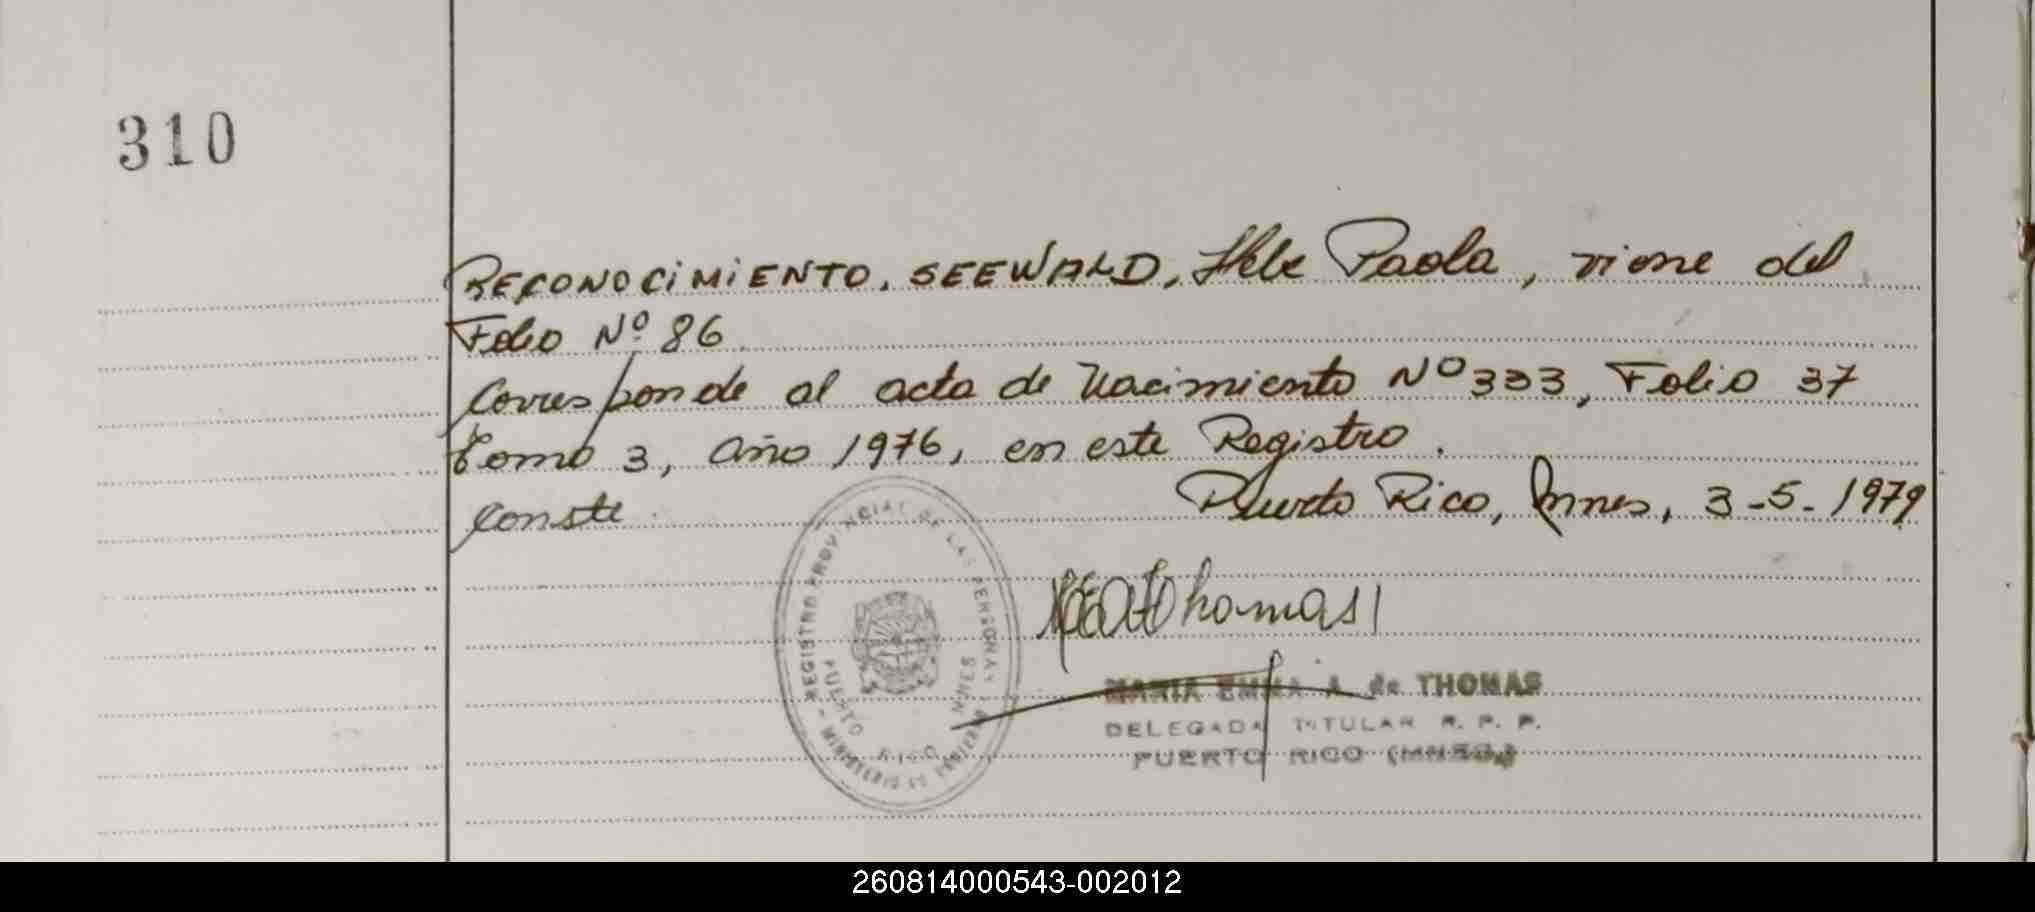 310
RECONOCIMIENTO, SEEWALD, Paola, viene del
Folio Nº 86
Corresponde al acta de Nacimiento Nº 333, Folio 37
tomo 3, año 1976, en este Registro.
Conste.
Puerto Rico, Mnes, 3-5-1979
REGISTRO PROVINCIAL DE LAS PERSONAS
PUERTO RICO MNES
MINISTERIO DE
Thomas
MARIA EMMA A. de THOMAS
DELEGADA TITULAR R. P. P.
PUERTO RICO
260814000543-002012